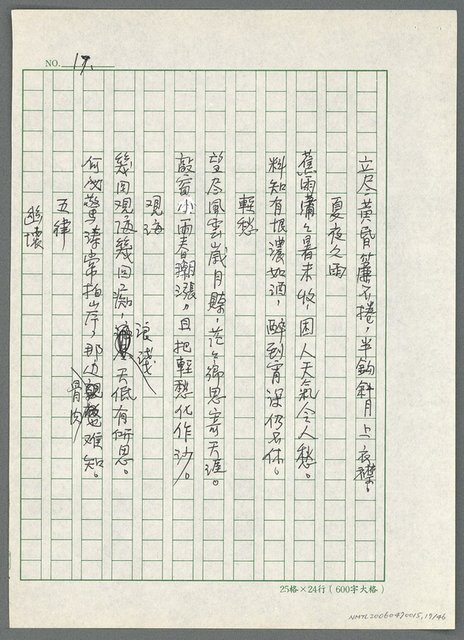 NO. 17.
立尽黃昏簾不捲，半鈎斜月上衣襟。
夏夜久雨
蕉雨蕭々暑未收，困人天氣令人愁。
料知有恨濃如酒，醉到宵深仍不休。
輕愁
望尽風雲歲月賒，茫々鄉思寄天涯。
敲窗小雨春潮漲，且把輕愁化作沙。
觀海
幾回觀海幾回痴，浪淺天低有所思。
何処驚濤常拍岸，那边骨肉難知。
五律
幽懷
25格×24行（600字大格）
NMTL20060470015, 17/46